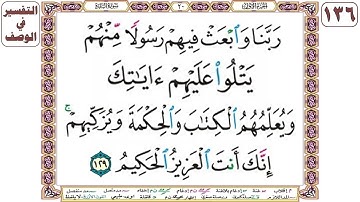 ١٣٦
التفسير
في
الوصف
٢٠
رَبَّنَا وَٱبۡعَثۡ فِيهِمۡ رَسُولٗا مِّنۡهُمۡ
يَتۡلُواْ عَلَيۡهِمۡ ءَايَٰتِكَ
وَيُعَلِّمُهُمُ ٱلۡكِتَٰبَ وَٱلۡحِكۡمَةَ وَيُزَكِّيهِمۡۖ
إِنَّكَ أَنتَ ٱلۡعَزِيزُ ٱلۡحَكِيمُ ١٢٩